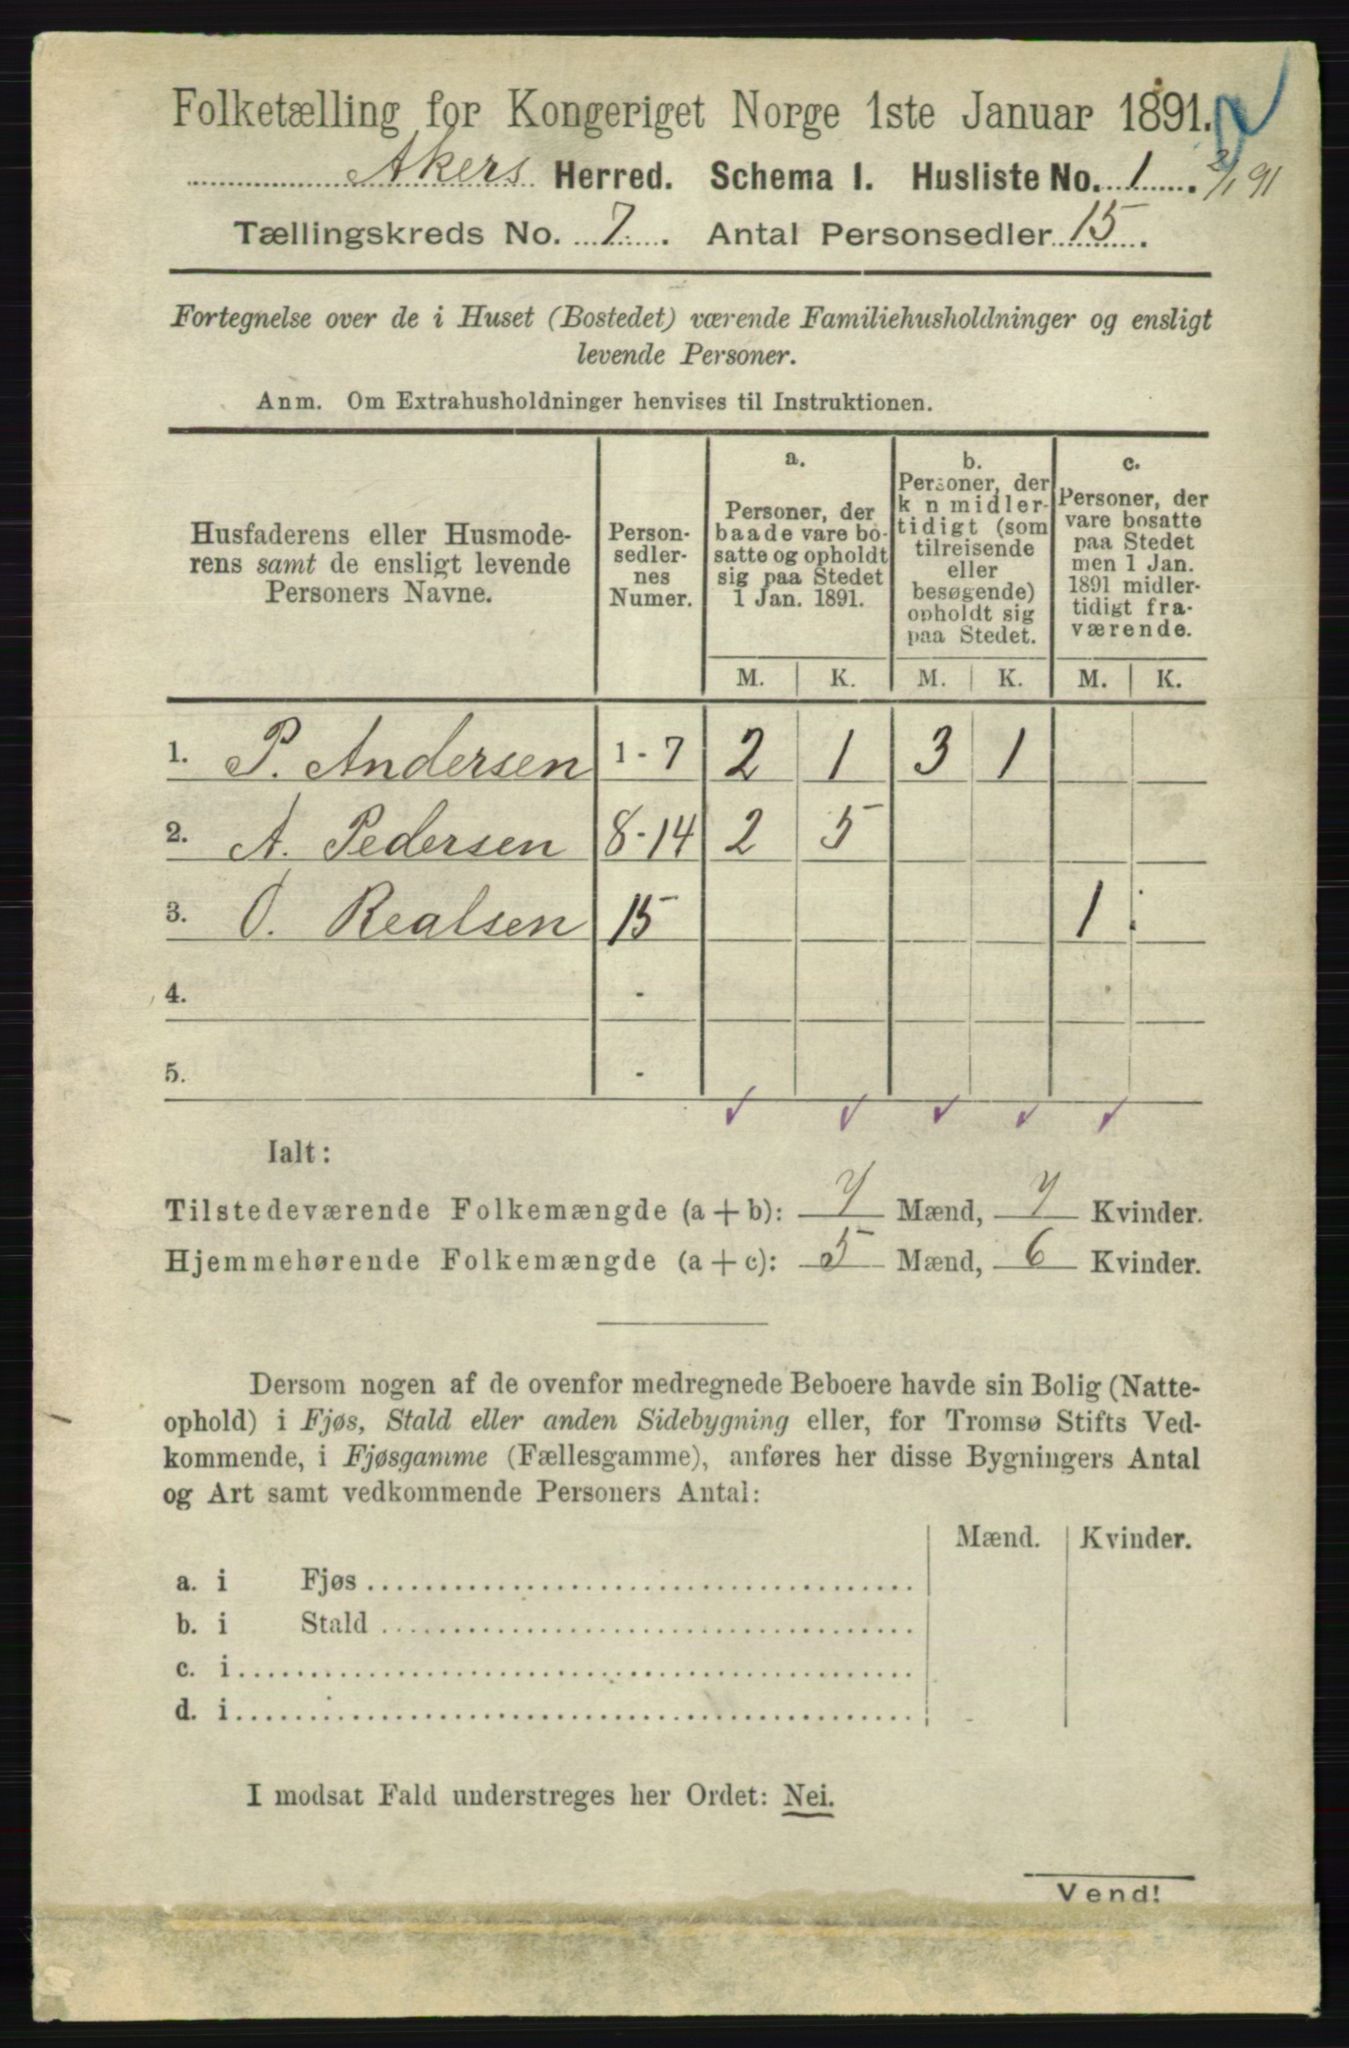 Folketælling for Kongeriget Norge 1ste Januar 1891.
Akers Herred. Schema I. Husliste No. 1. 2/1 91
Tællingskreds No. 7. Antal Personsedler 15.
Fortegnelse over de i Huset (Bostedet) værende Familiehusholdninger og ensligt
levende Personer.
Anm. Om Extrahusholdninger henvises til Instruktionen.
Husfaderens eller Husmode-
rens samt de ensligt levende
Personers Navne.
Person-
sedler-
nes
Numer.
a.
Personer, der
baade vare bo-
satte og opholdt
sig paa Stedet
1 Jan. 1891.
b.
Personer, der
k n midler-
tidigt (som
tilreisende
eller
besøgende)
opholdt sig
paa Stedet.
c.
Personer, der
vare bosatte
paa Stedet
men 1 Jan.
1891 midler-
tidigt fra-
værende.
M. K. M. K. M. K.
1. P. Andersen 1-7 2 1 3 1
2. A. Pedersen 8-14 2 5
3. O. Realsen 15 1
4. -
5. -
Ialt:
Tilstedeværende Folkemængde (a+b): 7 Mænd, 7 Kvinder.
Hjemmehørende Folkemængde (a+c): 5 Mænd, 6 Kvinder.
Dersom nogen af de ovenfor medregnede Beboere havde sin Bolig (Natte-
ophold) i Fjøs, Stald eller anden Sidebygning eller, for Tromsø Stifts Ved-
kommende, i Fjøsgamme (Fællesgamme), anføres her disse Bygningers Antal
og Art samt vedkommende Personers Antal:
Mænd. Kvinder.
a. i Fjøs
b. i Stald
c. i
d. i
I modsat Fald understreges her Ordet: Nei.
Vend!